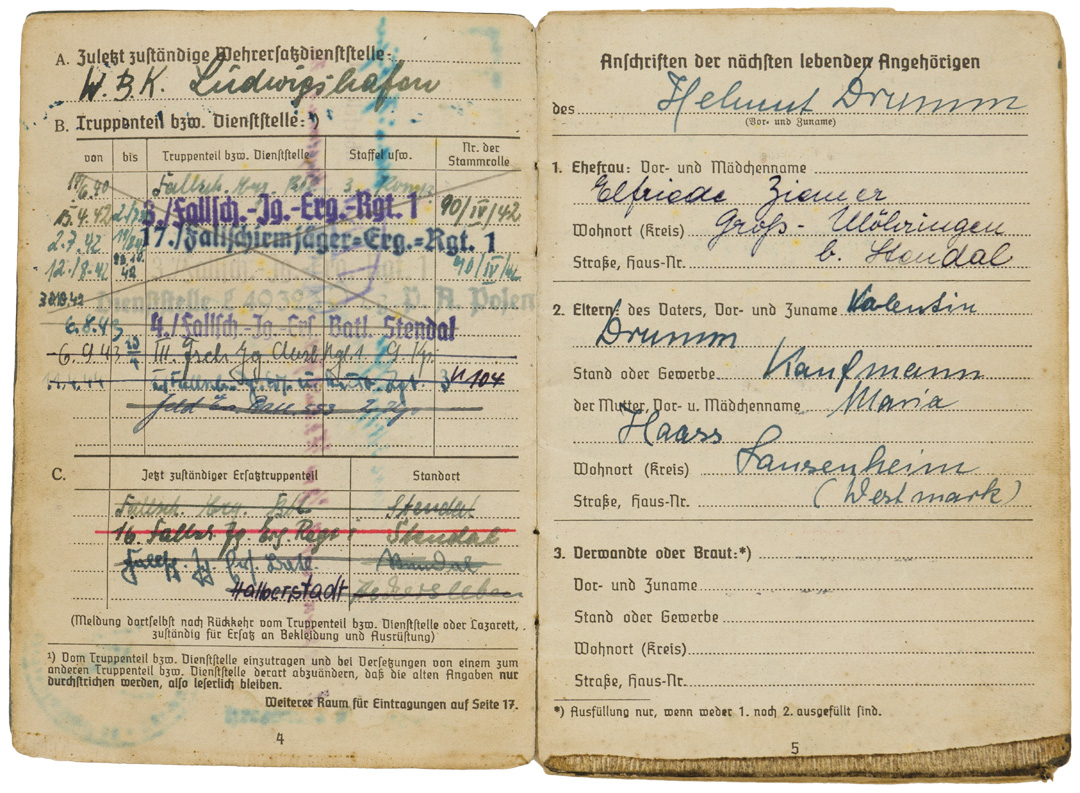 A. Zuletzt zuständige Wehrersatzdienststelle:
W.B.K. Ludwigshafen
B. Truppenteil bzw. Dienststelle: ¹)
von bis Truppenteil bzw. Dienststelle Staffel usw. Nr. der Stammrolle
Fallsch. 3. Komp.
13.4.42 3./Fallsch.-Jg.-Erg.-Rgt. 1 90/IV/42
2.7.42 17./Fallschirmjäger=Erg.=Rgt. 1
12.8.42 90/IV/42
Dienststelle L
6.8.43 4./Fallsch.-Jg.-Ers. Batl. Stendal
6.9.43 III. Fsch. Jg. Rgt. 1 9. Kp.
104
C. Jetzt zuständiger Ersatztruppenteil Standort
Fallsch. Erg. Btl. Stendal
16. Fallsch. Jg. Erg. Regt. 1 Stendal
Stendal
Halberstadt Aschersleben
(Meldung dortselbst nach Rückkehr vom Truppenteil bzw. Dienststelle oder Lazarett,
zuständig für Ersatz an Bekleidung und Ausrüstung)
¹) Vom Truppenteil bzw. Dienststelle einzutragen und bei Versetzungen von einem zum
anderen Truppenteil bzw. Dienststelle derart abzuändern, daß die alten Angaben nur
durchstrichen werden, also leserlich bleiben.
Weiterer Raum für Eintragungen auf Seite 17.
4
Anschriften der nächsten lebenden Angehörigen
des Helmut Drumm
(Vor- und Zuname)
1. Ehefrau: Vor- und Mädchenname
Elfriede Ziemer
Wohnort (Kreis) Groß-Möhringen
Straße, Haus-Nr. b. Stendal
2. Eltern: des Vaters, Vor- und Zuname Valentin
Drumm
Stand oder Gewerbe Kaufmann
der Mutter, Vor- u. Mädchenname Maria
Haass
Wohnort (Kreis) Sausenheim
Straße, Haus-Nr. (Westmark)
3. Verwandte oder Braut:*)
Vor- und Zuname
Stand oder Gewerbe
Wohnort (Kreis)
Straße, Haus-Nr.
*) Ausfüllung nur, wenn weder 1. noch 2. ausgefüllt sind.
5